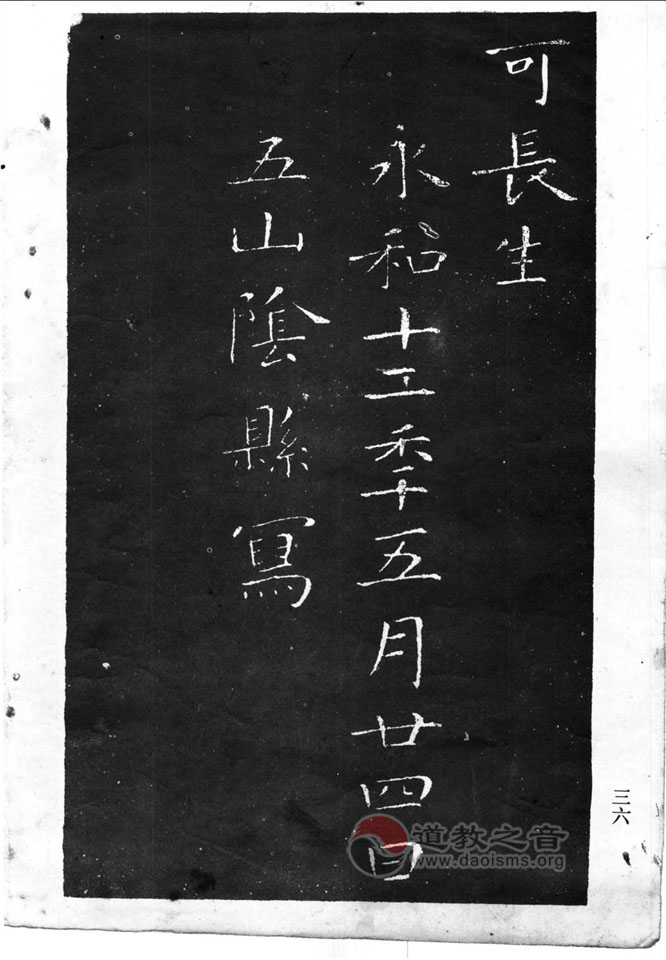 可長生
永和十二秊五月廿四日
五山隂縣冩
三六
道教之音
www.daoisms.org